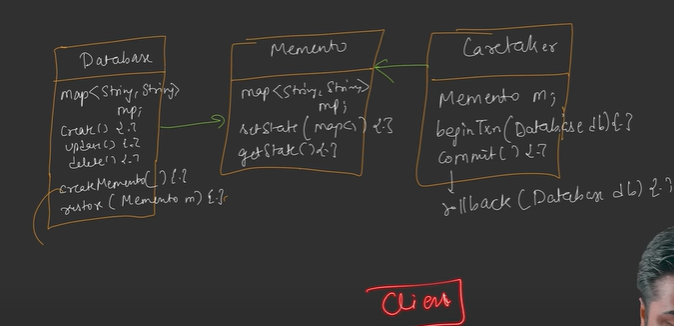 Database
map<String, String>
mp;
create() {-}
update() {-}
delete() {-}
createMemento() {-}
restore (Memento m) {-}
Memento
map<String, String>
mp;
setState (map<>) {-}
getState() {-}
Caretaker
Memento m;
beginTxn (Database db) {-}
commit() {-}
rollback (Database db) {-}
Client